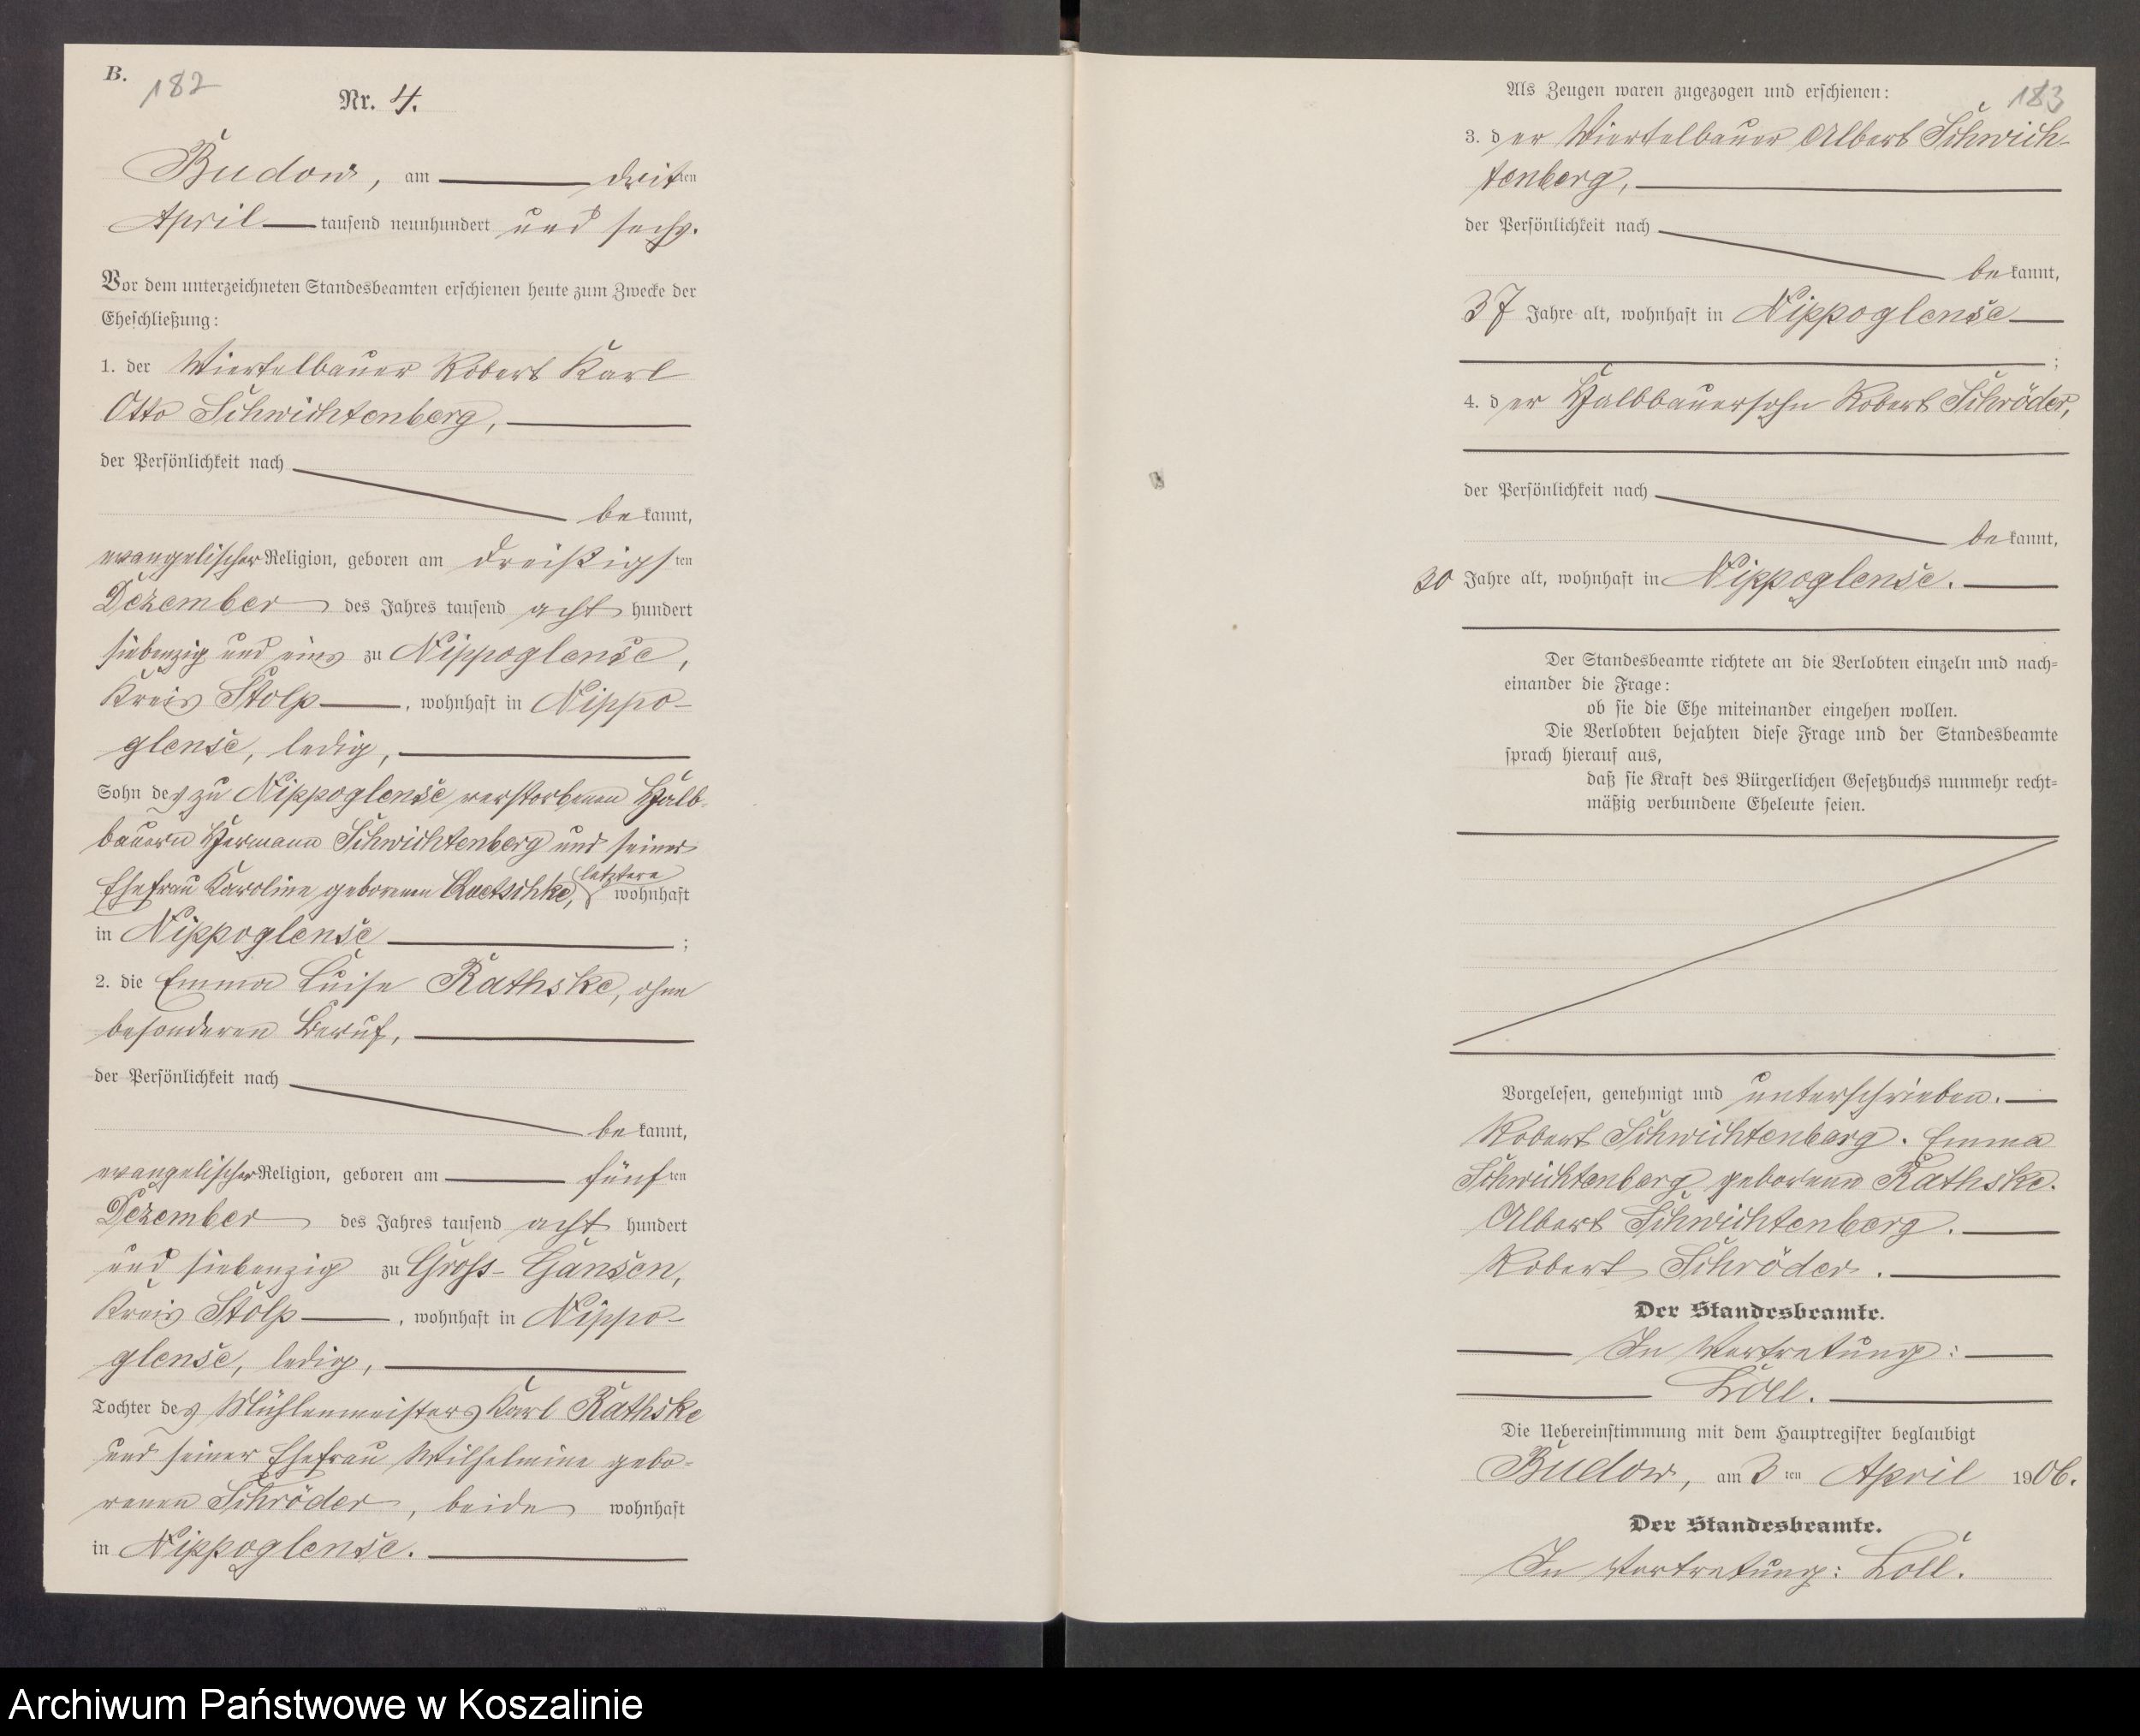 B.
182
Nr. 4.
Budow, am dritten
April tausend neunhundert und sechs.
Vor dem unterzeichneten Standesbeamten erschienen heute zum Zwecke der
Eheschließung:
1. der Viertelbauer Robert Karl
Otto Schwichtenberg,
der Persönlichkeit nach
bekannt,
evangelischer Religion, geboren am dreißigsten
Dezember des Jahres tausend acht hundert
siebenzig und eins zu Nippoglense,
Kreis Stolp, wohnhaft in Nippo-
glense, ledig,
Sohn des zu Nippoglense verstorbenen Halb-
bauern Hermann Schwichtenberg und seiner
letztere
Ehefrau Karoline geborenen Quetschke, wohnhaft
in Nippoglense ;
2. die Emma Luise Rathske, ohne
besonderen Beruf,
der Persönlichkeit nach
bekannt,
evangelischer Religion, geboren am fünften
Dezember des Jahres tausend acht hundert
und siebenzig zu Gross-Gansen,
Kreis Stolp, wohnhaft in Nippo-
glense, ledig,
Tochter des Mühlenmeisters Karl Rathske
und seiner Ehefrau Wilhelmine gebo-
renen Schröder, beide wohnhaft
in Nippoglense.
183
Als Zeugen waren zugezogen und erschienen:
3. der Viertelbauer Albert Schwich-
tenberg,
der Persönlichkeit nach
bekannt,
37 Jahre alt, wohnhaft in Nippoglense
;
4. der Halbbauersohn Robert Schröder,
der Persönlichkeit nach
bekannt,
30 Jahre alt, wohnhaft in Nippoglense.
Der Standesbeamte richtete an die Verlobten einzeln und nach-
einander die Frage:
ob sie die Ehe miteinander eingehen wollen.
Die Verlobten bejahten diese Frage und der Standesbeamte
sprach hierauf aus,
daß sie Kraft des Bürgerlichen Gesetzbuchs nunmehr recht-
mäßig verbundene Eheleute seien.
Vorgelesen, genehmigt und unterschrieben.
Robert Schwichtenberg. Emma
Schwichtenberg geborene Rathske.
Albert Schwichtenberg.
Robert Schröder.
Der Standesbeamte.
In Vertretung:
Loll.
Die Uebereinstimmung mit dem Hauptregister beglaubigt
Budow, am 3ten April 1906.
Der Standesbeamte.
In Vertretung: Loll.
Archiwum Państwowe w Koszalinie